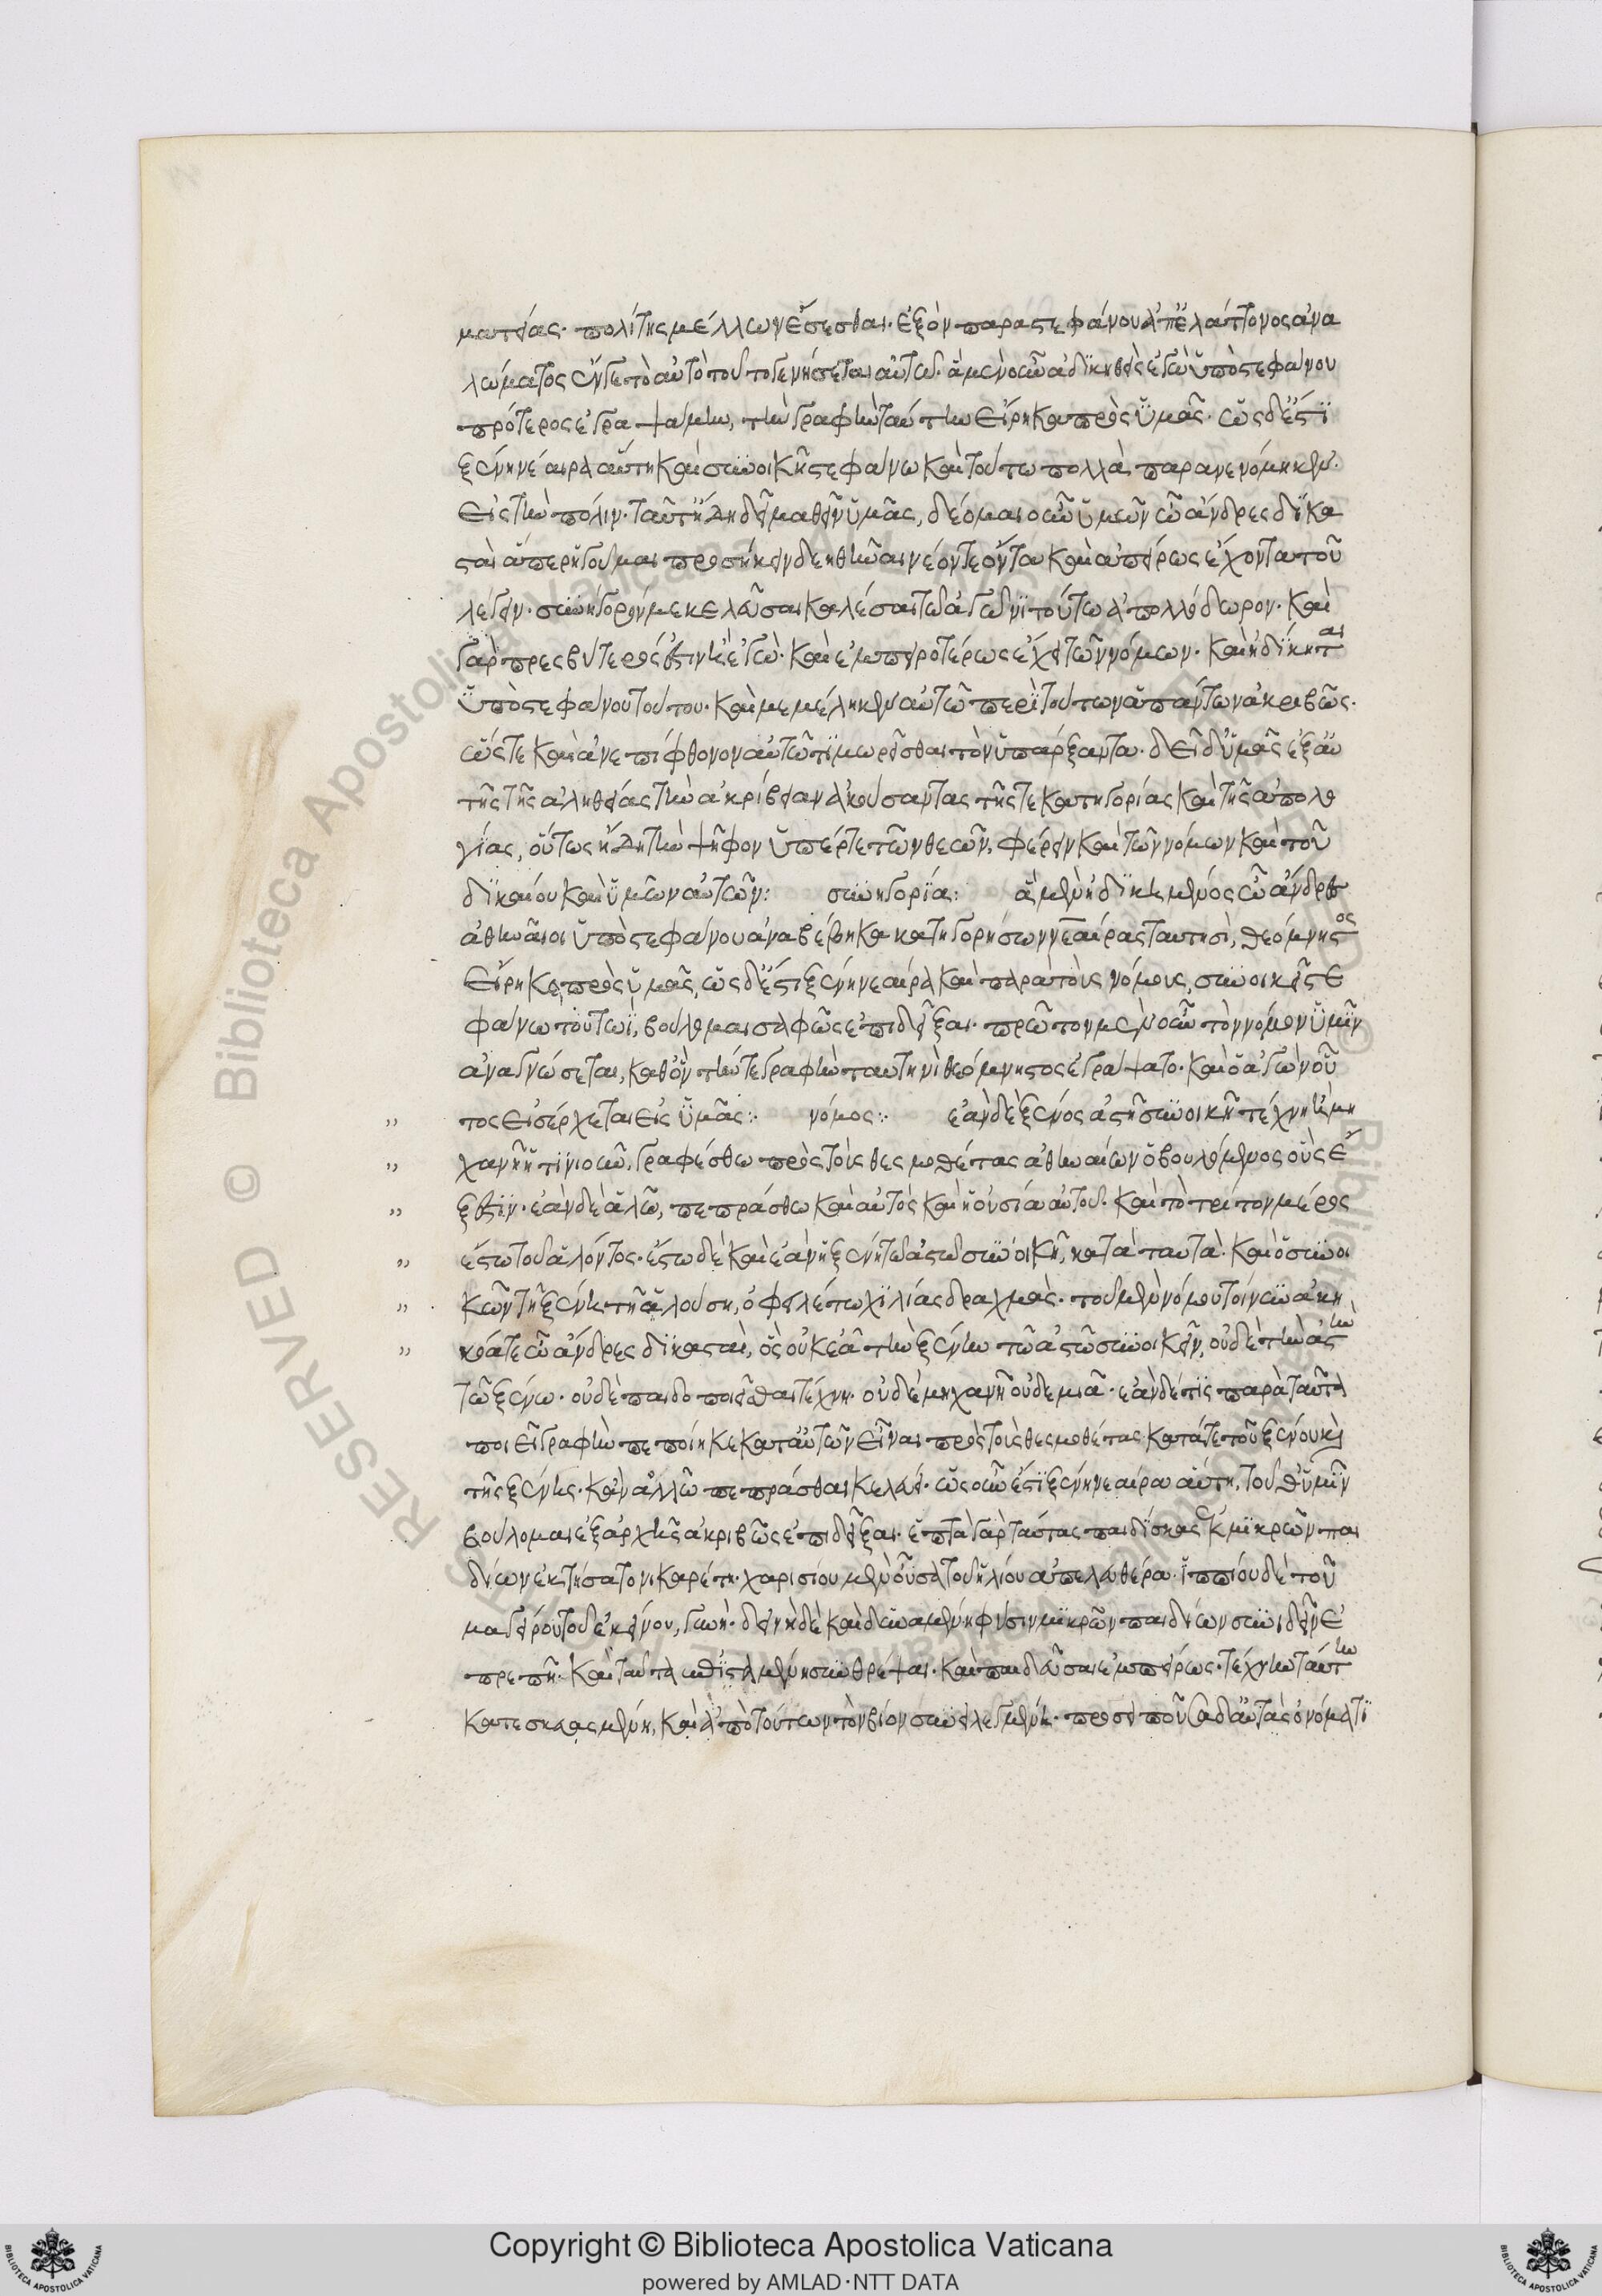 ματείας· πολίτης μέλλων ἔσεσθαι· ἐξὸν παρὰ στεφάνου ἀπ' ἐλάττονος ἀνα
λώματος ἔν γε τὸ αὐτὸ τοῦτο γενήσεται αὐτῶ· ἃ μὲν οὖν ἀδικηθεὶς ἐγὼ ὑπὸ στεφάνου
πρότερος ἐγραψάμην, τὴν γραφὴν ταύτην εἴρηκα πρὸς ὑμᾶς· ὡς δ' ἐστὶ
ξένη νέαιρα αὕτη καὶ συνοικεῖ στεφάνω τούτω καὶ πολλὰ παρανενόμηκεν
εἰς τὴν πόλιν· ταῦτ' ἤδη δεῖ μαθεῖν ὑμᾶς, δέομαι οὖν ὑμῶν ὦ ἄνδρες δικα
σταὶ ἅπερ ἡγοῦμαι προσήκειν δεηθῆναι νέον τε ὄντα καὶ ἀπείρως ἔχοντα τοῦ
λέγειν· συνήγορόν με κελεῦσαι καλέσαι τῶ ἀγῶνι τούτω ἀπολλόδωρον· καὶ
γὰρ πρεσβύτερός ἐστιν ἢ ἐγώ· καὶ ἐμπειροτέρως ἔχει τῶν νόμων· καὶ ἠδίκηται
ὑπὸ στεφάνου τούτου· καὶ μεμέληκεν αὐτῶ περὶ τούτων ἁπάντων ἀκριβῶς·
ὥστε καὶ ἀνεπίφθονον αὐτῶ τιμωρεῖσθαι τὸν ὑπάρξαντα· δεῖ δ' ὑμᾶς ἐξ αὐ
τῆς τῆς ἀληθείας τὴν ἀκρίβειαν ἀκούσαντας τῆς τε κατηγορίας καὶ τῆς ἀπολο
γίας, οὕτως ἤδη τὴν ψῆφον ὑπέρ τε τῶν θεῶν, φέρειν καὶ τῶν νόμων καὶ τοῦ
δικαίου καὶ ὑμῶν αὐτῶν: συνηγορία: ἃ μὲν ἠδικημένος ὦ ἄνδρες
ἀθηναῖοι ὑπὸ στεφάνου ἀναβέβηκα κατηγορήσων νεαίρας ταυτησὶ, θεόμνηστος
εἴρηκε πρὸς ὑμᾶς, ὡς δ' ἔστι ξένη νέαιρα καὶ παρὰ τοὺς νόμους, συνοικεῖ στε
φάνω τούτωι, βούλομαι σαφῶς ἐπιδεῖξαι· πρῶτον μὲν οὖν τὸν νόμον ὑμῖν
ἀναγνώσεται, καθ' ὃν τήν τε γραφὴν ταυτηνὶ θεόμνηστος ἐγράψατο· καὶ ὁ ἀγὼν οὗ
τος εἰσέρχεται εἰς ὑμᾶς: νόμος: ἐὰν δὲ ξένος ἀστῆ συνοικῆ τέχνη ἢ μη
χανῆ ἡτινιοῦν, γραφέσθω πρὸς τοὺς θεσμοθέτας ἀθηναίων ὁ βουλόμενος οἷς ἔ
ξεστιν· ἐὰν δὲ ἁλῶ, πεπράσθω καὶ αὐτὸς καὶ ἡ οὐσία αὐτοῦ· καὶ τὸ τρίτον μέρος
ἔστω τοῦ ἁλόντος· ἔστω δὲ καὶ ἐὰν ἡ ξένη τῶ ἀστῶ συνοικῆ, κατὰ ταυτὰ· καὶ ὁ συνοι
κῶν τῆ ξένη τῆ ἁλούση, ὀφειλέτω χιλίας δραχμάς· τοῦ μὲν νόμου τοίνυν ἀκη
κόατε ὦ ἄνδρες δικασταὶ, ὃς οὐκ ἐᾶ τὴν ξένην τῶ ἀστῶ συνοικεῖν, οὐδὲ τὴν ἀστὴν
τῶ ξένω· οὐδὲ παιδοποιεῖσθαι τέχνη· οὐδὲ μηχανῆ οὐδεμιᾶ· ἐὰν δέ τις παρὰ ταῦτα
ποιεῖ γραφὴν πεποίηκε κατ' αὐτῶν εἶναι πρὸς τοὺς θεσμοθέτας κατά τε τοῦ ξένου καὶ
τῆς ξένης· κἂν ἁλῶ πεπράσθαι κελεύει· ὡς οὖν ἐστὶ ξένη νέαιρα αὕτη, τοῦθ' ὑμῖν
βούλομαι ἐξ ἀρχῆς ἀκριβῶς ἐπιδεῖξαι· ἑπτὰ γὰρ ταύτας παιδίσκας ἐκ μικρῶν παι
δίων ἐκτήσατο νικαρέτη· χαρισίου μὲν οὖσα τοῦ ἠλίου ἀπελευθέρα· ἱππίου δὲ τοῦ
μαγείρου τοῦ ἐκείνου, γυνὴ· δεινὴ δὲ καὶ δυναμένη φύσιν μικρῶν παιδίων συνιδεῖν εὐ
πρεπῆ· καὶ ταῦτα ἐπισταμένη συνθρέψαι· καὶ παιδεῦσαι ἐμπείρως· τέχνην ταύτην
κατεσκευασμένη, καὶ ἀπὸ τούτων τὸν βίον συνειλεγμένη· προσειποῦσα δ' αὐτὰς ὀνόματι